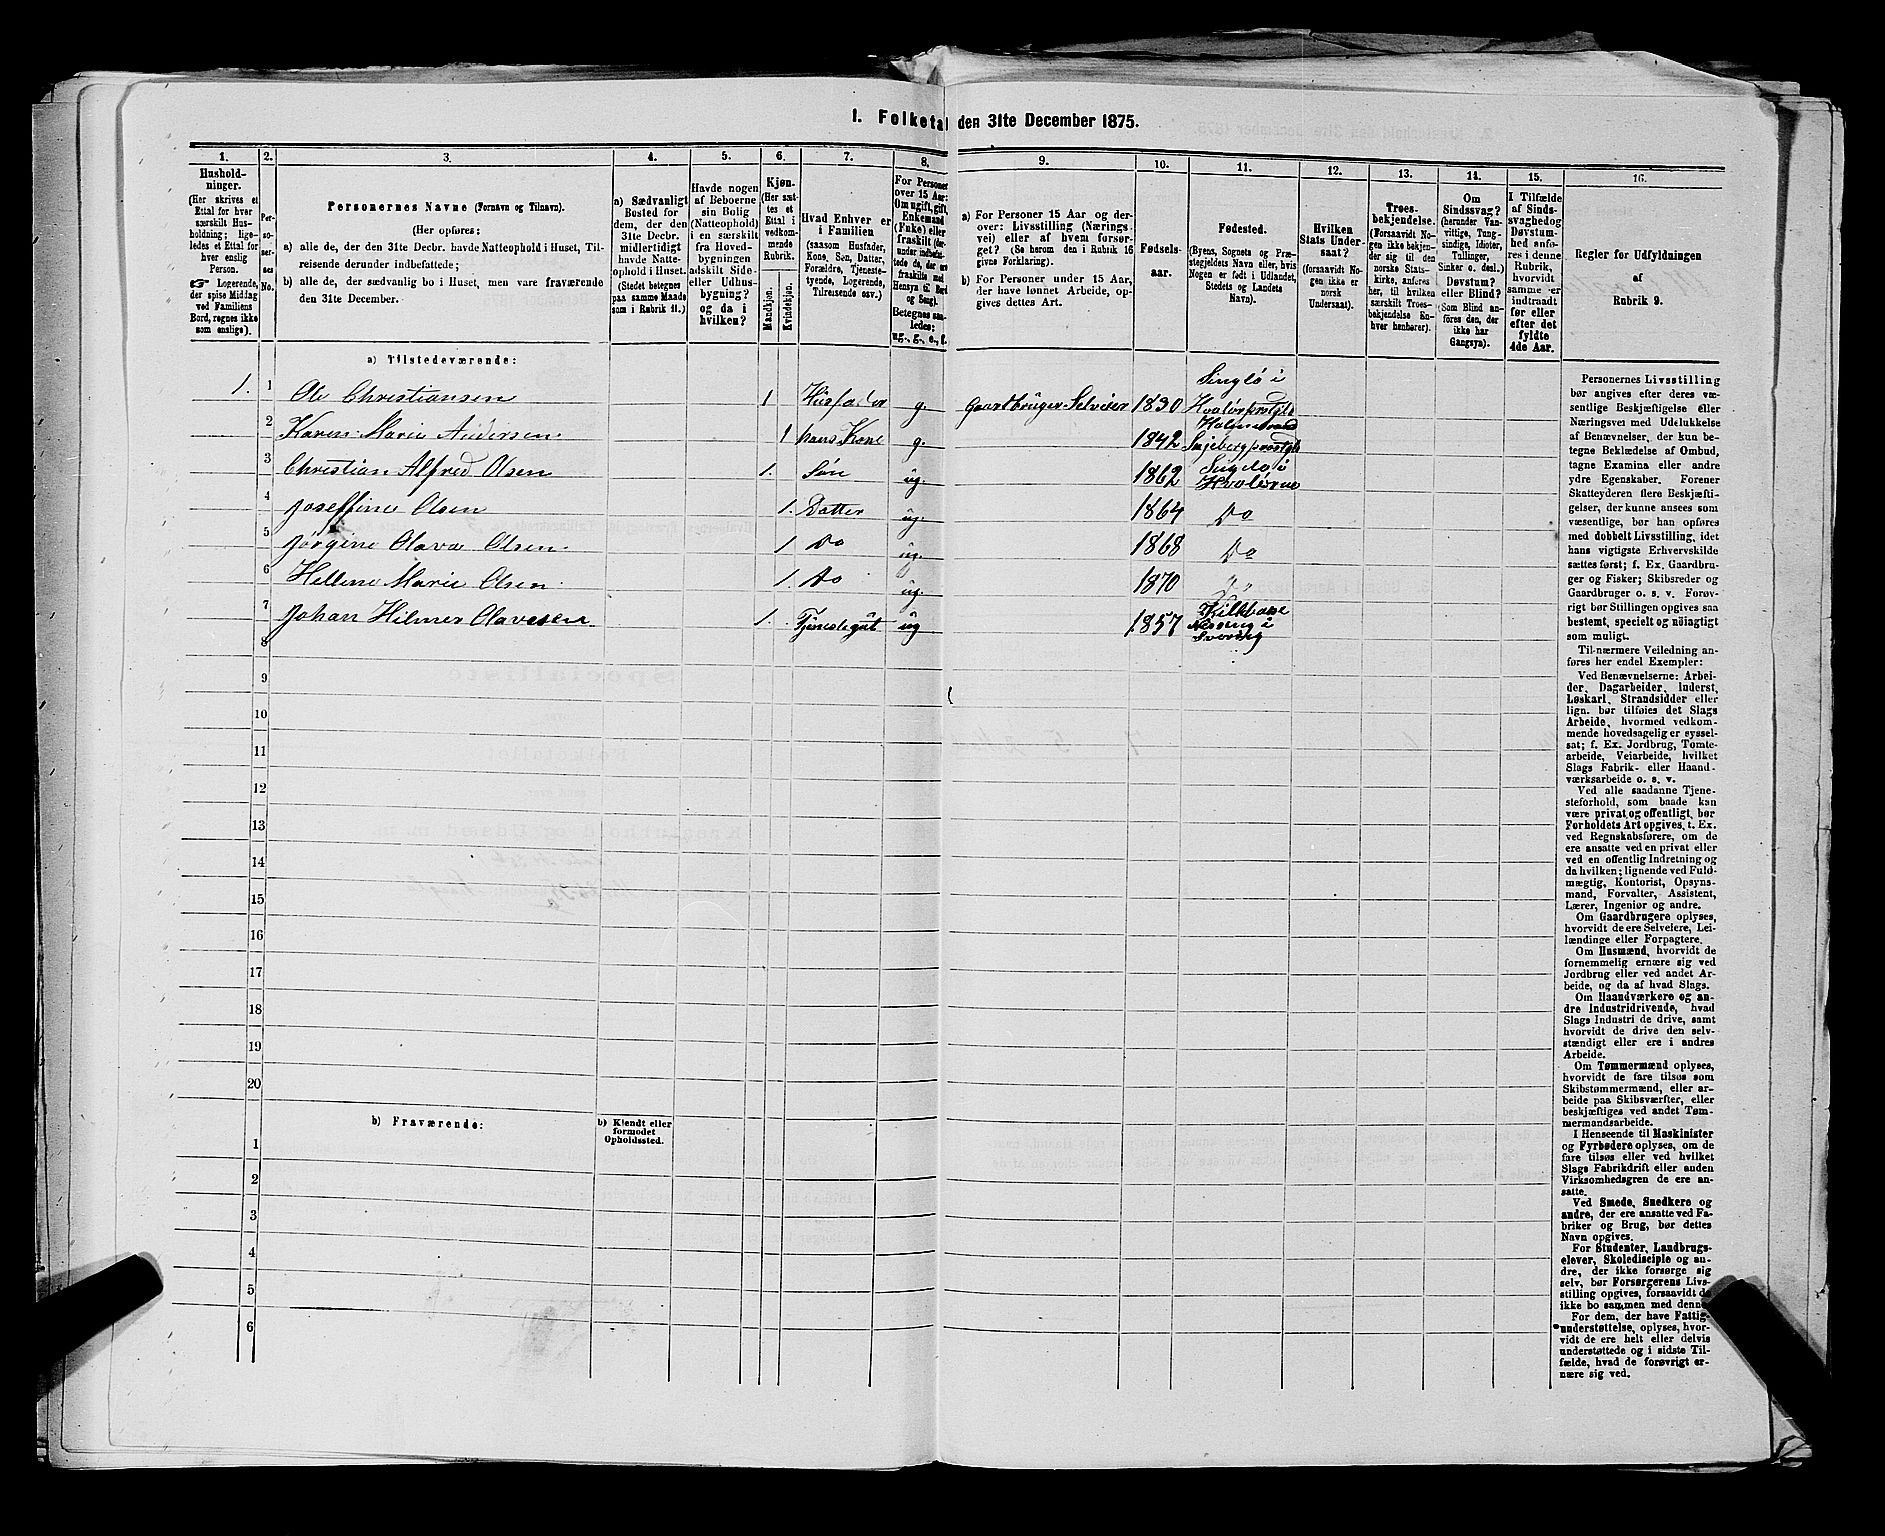 1. Folketal den 31te December 1875.
1.
Husholdninger.
(Her skrives et
Ettal for hver
særskilt Husholdning; ligeledes
et Ettal for
hver enslig
Person.
☞ Logerende,
der spise Middag
ved Familiens
Bord, regnes ikke
som enslige).
2.
Personernes
No.
3.
Personernes Navne (Fornavn og Tilnavn).
(Her opføres:
a) alle de, der den 31te Decbr. havde Natteophold i Huset, Tilreisende
derunder indbefattede;
b) alle de, der sædvanlig bo i Huset, men vare fraværende
den 31te December.
4.
a) Sædvanligt
Bosted for
dem, der den
31te Decbr.
midlertidigt
havde Natteophold
i Huset.
(Stedet betegnes
paa samme Maade
som i Rubrik 11.)
5.
Havde nogen
af Beboerne
sin Bolig
(Natteophold)
i en særskilt
fra Hovedbygningen
adskilt Side-
eller Udhusbygning?
og da i
hvilken?
6.
Kjøn.
(Her sættes
et
Ettal i
vedkommende
Rubrik.
Mandkjøn.
Kvindekjøn.
7.
Hvad Enhver er
i Familien
(saasom Husfader,
Kone, Søn, Datter,
Forældre, Tjenestetyende,
Logerende,
Tilreisende osv.)
8.
For Personer
over 15 Aar:
Om ugift, gift,
Enkemand
(Enke) eller
fraskilt
Betegnes saaledes:
ug., g., e., f.
9.
a) For Personer 15 Aar og derover:
Livsstilling (Næringsvei)
eller af hvem forsørget?
(Se herom den i Rubrik 16
givne Forklaring).
b) For Personer under 15 Aar,
der have lønnet Arbeide, opgives
dettes Art.
10.
Fødselsaar.
11.
Fødested.
(Byens, Sognets og Præstegjeldets
Navn eller, hvis
Nogen er født i Udlandet,
Stedets og Landets
Navn).
12.
Hvilken
Stats Undersaat?
(forsaavidt Nogen
ikke er
norsk
Undersaat).
13.
Troesbekjendelse.
(Forsaavidt Nogen
ikke bekjender
sig til den
norske Statskirke,
anføres
her, til hvilken
særskilt Troesbekjendelse
Enhver
henhører).
14.
Om
Sindssvag?
(herunder Vanvittige,
Tungsindige,
Idioter,
Tullinger,
Sinker o. desl.)
Døvstum?
eller Blind?
(Som Blind anføres
den, der
ikke har
Gangsyn).
15.
I Tilfælde
af Sindssvaghed
og
Døvstumhed
anføres
i denne
Rubrik,
hvorvidt
samme er
indtraadt
før eller
efter det
fyldte
4de Aar.
16.
Regler for Udfyldningen
af
Rubrik 9.
a) Tilstedeværende:
1. 1 Ole Christiansen 1 Husfader g. Gaardbruger Selveier 1830 Singlø i Hvalør
2 Karen Marie Andersen. 1 hans Kone g. 1842 Holmestrand
3 Christian Alfred Olsen 1. Søn ug. 1862 Singlø i Hvalørne
4 Joseffine Olsen 1. Datter ug. 1864 Do
5 Jørgine Olava Olsen. 1 Do ug. 1868 Do
6 Hellene Marie Olsen. 1. Do ug. 1870 " "
7 Johan Hilmer Olavesen 1. Tjenestegut ug 1857
8
9
10
11
12
13
14
15
16
17
18
19
20
b) Fraværende:
b) Kjendt eller
formodet
Opholdssted.
1
2
3
4
5
6
Personernes Livsstilling
bør angives efter deres væsentlige
Beskjæftigelse eller
Næringsvei med Udelukkelse
af Benævnelser, der kun betegne
Beklædelse af Ombud,
tagne Examina eller andre
ydre Egenskaber. Forener
Skatteyderen flere Beskjæftigelser,
der kunne ansees som
væsentlige, bør han opføres
med dobbelt Livsstilling, idet
hans vigtigste Erhvervskilde
sættes først; f. Ex. Gaardbruger
og Fisker; Skibsreder og
Gaardbruger o. s. v. Forøvrigt
bør Stillingen opgives saa
bestemt, specielt og nöiagtigt
som muligt.
Til nærmere Veiledning anføres
her endel Exempler:
Ved Benævnelserne: Arbeider,
Dagarbeider, Inderst,
Løskarl, Strandsidder eller
lign. bør tilføies det Slags
Arbeide, hvormed vedkommende
hovedsagelig er sysselsat;
f. Ex. Jordbrug, Tomtearbeide,
Veiarbeide, hvilket
Slags Fabrik- eller Haandværksarbeide
o. s. v.
Ved alle saadanne Tjenesteforhold,
som baade kan
være privat og offentligt, bør
Forholdets Art opgives, t. Ex.
ved Regnskabsførere, om de
ere ansatte ved en privat eller
ved en offentlig Indretning og
da hvilken; lignende ved Fuldmægtig,
Kontorist, Opsynsmand,
Forvalter, Assistent,
Lærer, Ingeniør og andre.
Om Gaardbrugere oplyses,
hvorvidt de ere Selveiere, Leilændinge
eller Forpagtere.
Om Husmænd, hvorvidt de
fornemmelig ernære sig ved
Jordbrug eller ved andet Arbeide,
og da af hvad Slags.
Om Haandværkere og andre
Industridrivende, hvad
Slags Industri de drive, samt
hvorvidt de drive den selvstændigt
eller ere i andres
Arbeide.
Om Tømmermænd oplyses,
hvorvidt de fare tilsøs som
Skibstømmermænd, eller arbeide
paa Skibsværfter, eller
beskjæftiges ved andet Tømmermandsarbeide.
I Henseende til Maskinister
og Fyrbødere oplyses, om de
fare tilsøs eller ved hvilket
Slags Fabrikdrift eller anden
Virksomhedsgren de ere ansatte.
Ved Smede, Snedkere og
andre, der ere ansatte ved Fabriker
og Brug, bør dettes
Navn opgives.
For Studenter, Landbrugselever,
Skoledisciple og andre,
der ikke forsørge sig
selv, bør Forsørgerens Livsstilling
opgives, forsaavidt de
ikke bo sammen med denne.
For dem, der have Fattigunderstøttelse,
oplyses, hvorvidt
de ere helt eller delvis
understøttede og i sidste Tilfælde,
hvad de forøvrigt ernære
sig ved.